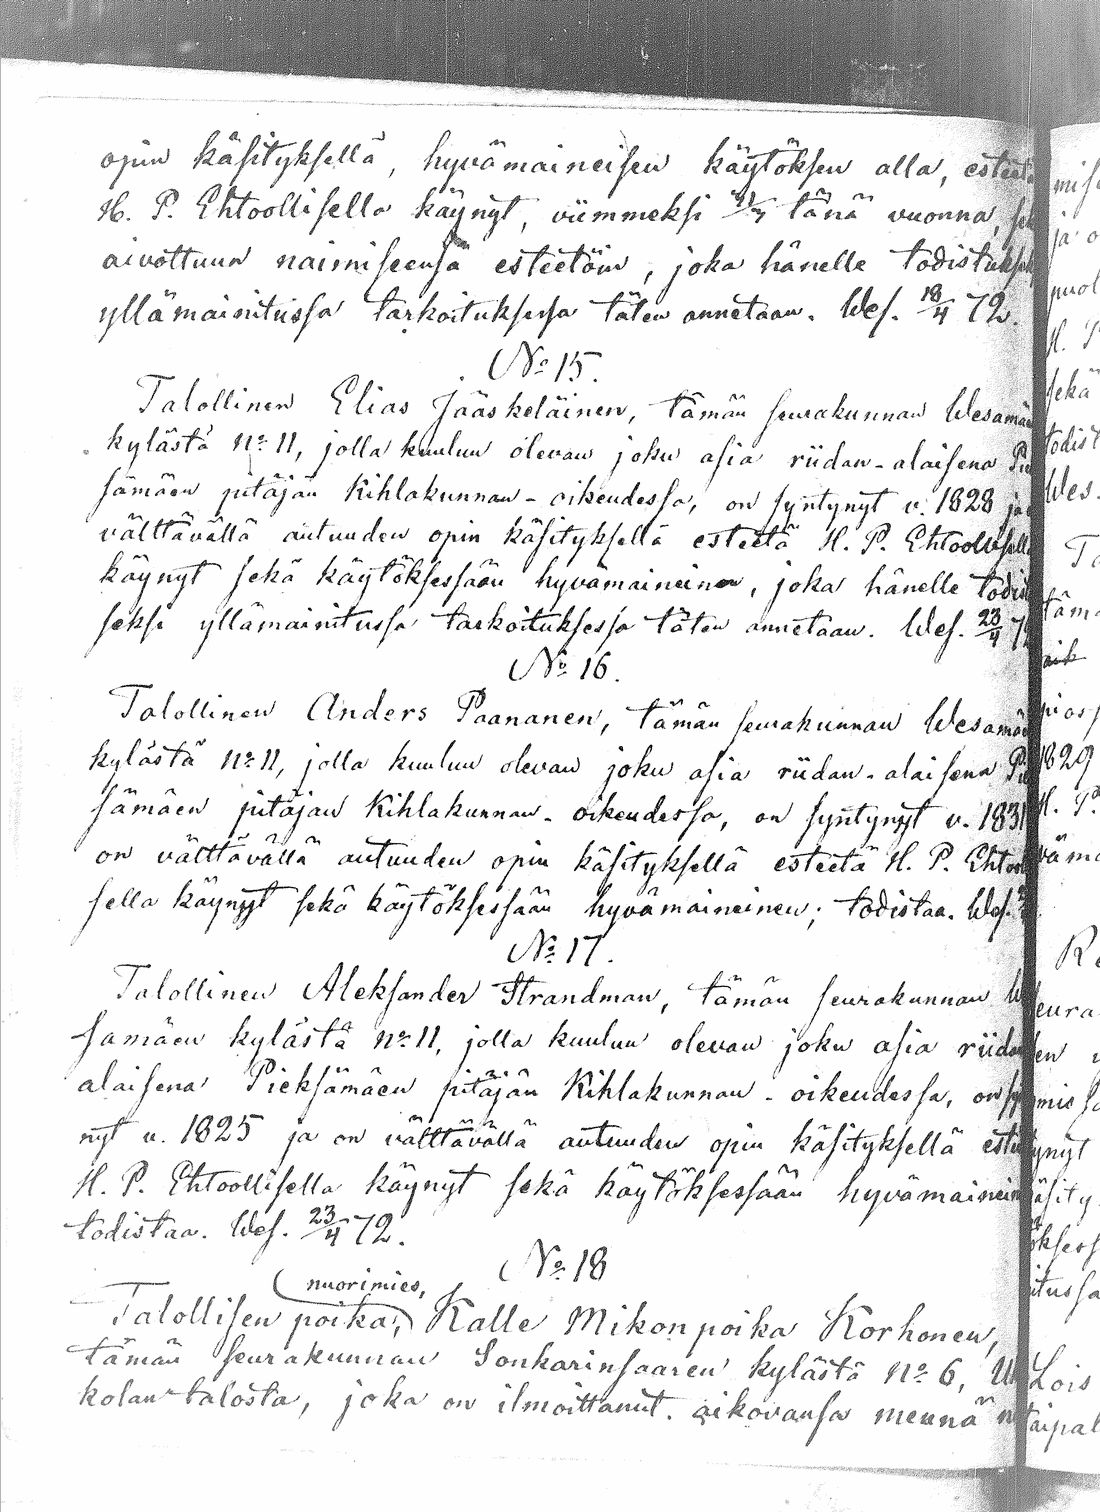 opin käsityksellä, hyvämaineisen käytöksen alla, esteetä
H. P. Ehtoollisella käynyt, viimmeksi tänä vuonna,
aivottuun naimiseensa esteetöin, joka hänelle todistuk
yllämainitussa tarkoituksessa täten annetaan. Wes. 18/4 72.
No 15.
Talollinen Elias Jääskeläinen, tämän seurakunnan Wesamä
kylästä No 11, jolla kuuluu olevan joku asia riidan-alaisena Pi
sämäen pitäjän Kihlakunnan-oikeudessa, on syntynyt v. 1828 ja
välttävällä autuuden opin käsityksellä esteetä H. P. Ehtoollisella
käynyt sekä käytöksessään hyvämaineinen, joka hänelle todis
seksi yllämainitussa tarkoituksessa täten annetaan. Wes. 23/4 7
No 16.
Talollinen Anders Paananen, tämän seurakunnan Wesamä
kylästä No 11, jolla kuuluu olevan joku asia riidan-alaisena Pi
sämäen pitäjän Kihlakunnan-oikeudessa, on syntynyt v. 1831
on välttävällä autuuden opin käsityksellä esteetä H. P. Ehtool
sella käynyt sekä käytöksessään hyvämaineinen; todistaa. Wes.
No 17.
Talollinen Aleksander Strandman, tämän seurakunnan We
samäen kylästä No 11, jolla kuuluu olevan joku asia riidan
alaisena Pieksämäen pitäjän Kihlakunnan-oikeudessa, on sy
nyt v. 1825 ja on välttävällä autuuden opin käsityksellä estee
H. P. Ehtoollisella käynyt sekä käytöksessään hyvämainein
todistaa. Wes. 23/4 72.
No 18
nuorimies,
Talollisen poika, Kalle Mikonpoika Korhonen,
tämän seurakunnan Sonkarinsaaren kylästä No 6, U
kolan-talosta, joka on ilmoittanut aikovansa mennä n